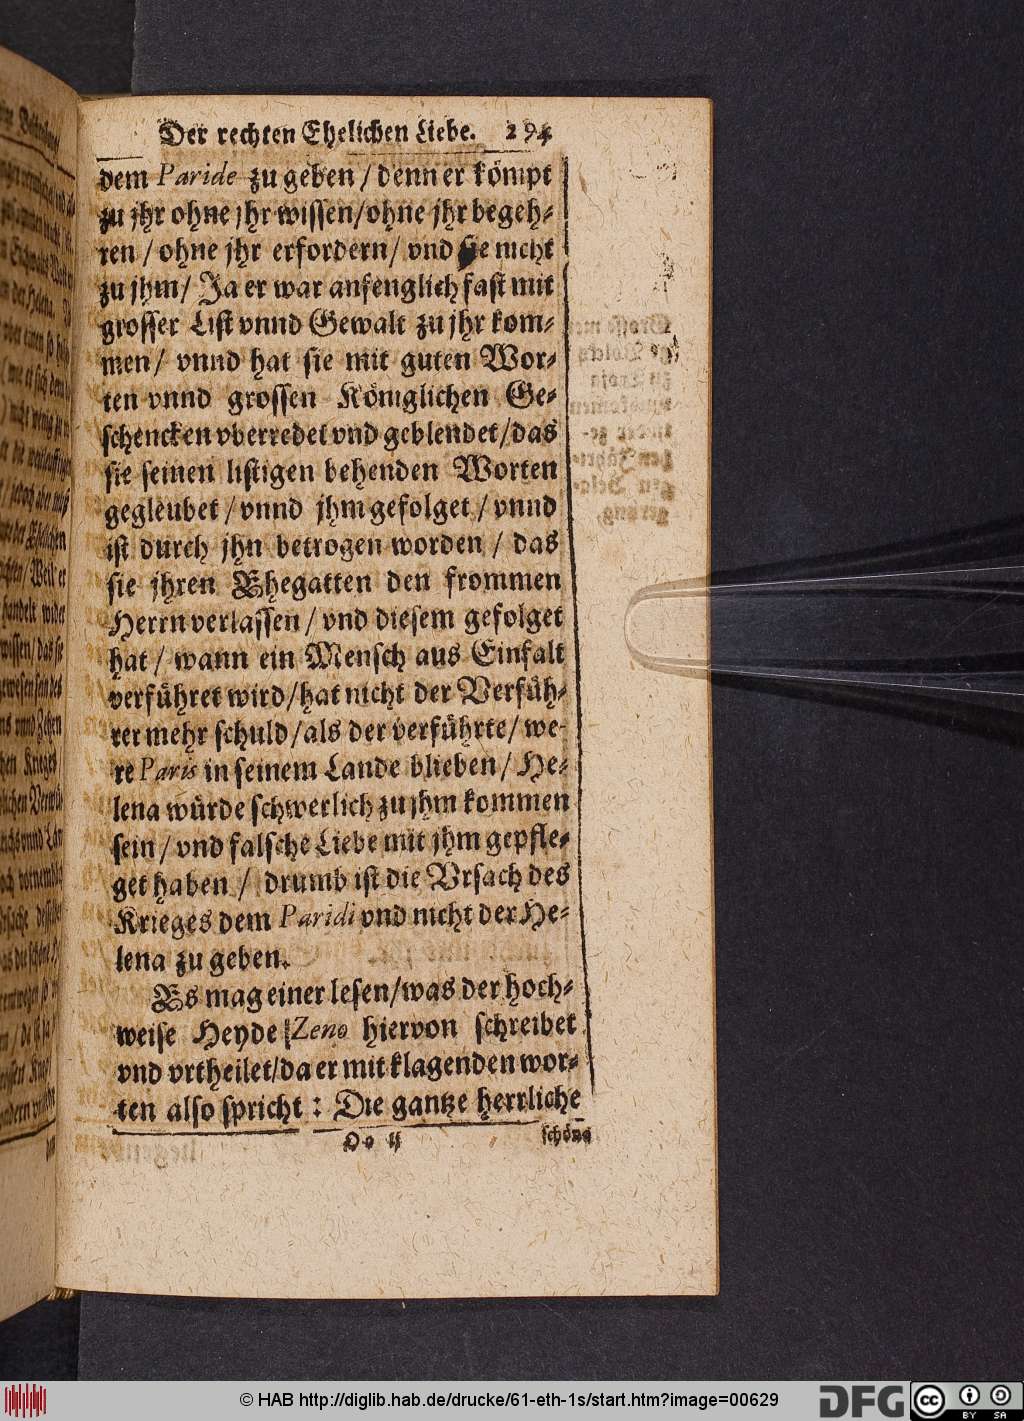 Der rechten Ehelichen Liebe. 294
dem Paride zu geben / denn er kömpt
zu jhr ohne jhr wissen/ohne jhr begeh-
ren / ohne jhr erfordern/ vnd sie nicht
zu jhm/ Ja er war anfenglich fast mit
grosser List vnnd Gewalt zu jhr kom-
men/ vnnd hat sie mit guten Wor-
ten vnnd grossen Königlichen Ge-
schencken vberredet vnd geblendet/das
sie seinen listigen behenden Worten
gegleubet / vnnd jhm gefolget / vnnd
ist durch jhn betrogen worden / das
sie jhren Ehegatten den frommen
Herrn verlassen / vnd diesem gefolget
hat / wann ein Mensch aus Einfalt
verführet wird/hat nicht der Verfüh-
rer mehr schuld/als der verführte/ we-
re Paris in seinem Lande blieben/ He-
lena würde schwerlich zu jhm kommen
sein/ vnd falsche Liebe mit jhm gepfle-
get haben / drumb ist die Vrsach des
Krieges dem Paridi vnd nicht der He-
lena zu geben.
Es mag einer lesen/was der hoch-
weise Heyde Zeno hiervon schreibet
vnd vrtheilet/da er mit klagenden wor-
ten also spricht : Die gantze herrliche
Oo ij schöne
© HAB http://diglib.hab.de/drucke/61-eth-1s/start.htm?image=00629
DFG
cc BY SA